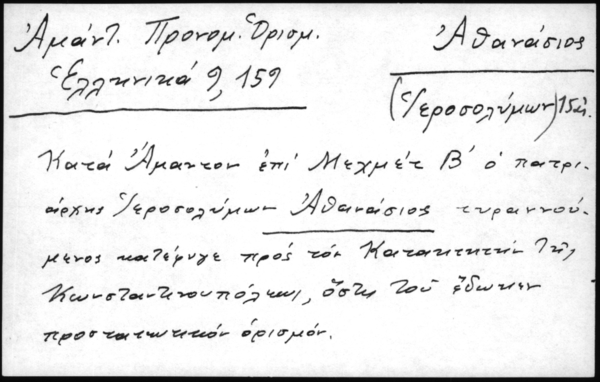 Ἀμάντ. Προνομ. Ὁρισμ.
Ἑλληνικά 9, 159
Ἀθανάσιος
(Ἱεροσολύμων) 15 αἰ.
Κατά Ἄμαντον ἐπί Μεχμέτ Β' ὁ πατρι-
άρχης Ἱεροσολύμων Ἀθανάσιος τυραννού-
μενος κατέφυγε πρός τόν Κατακτητήν τῆς
Κωνσταντινουπόλεως, ὅστις τοῦ ἔδωκεν
προστατευτικόν ὁρισμόν.